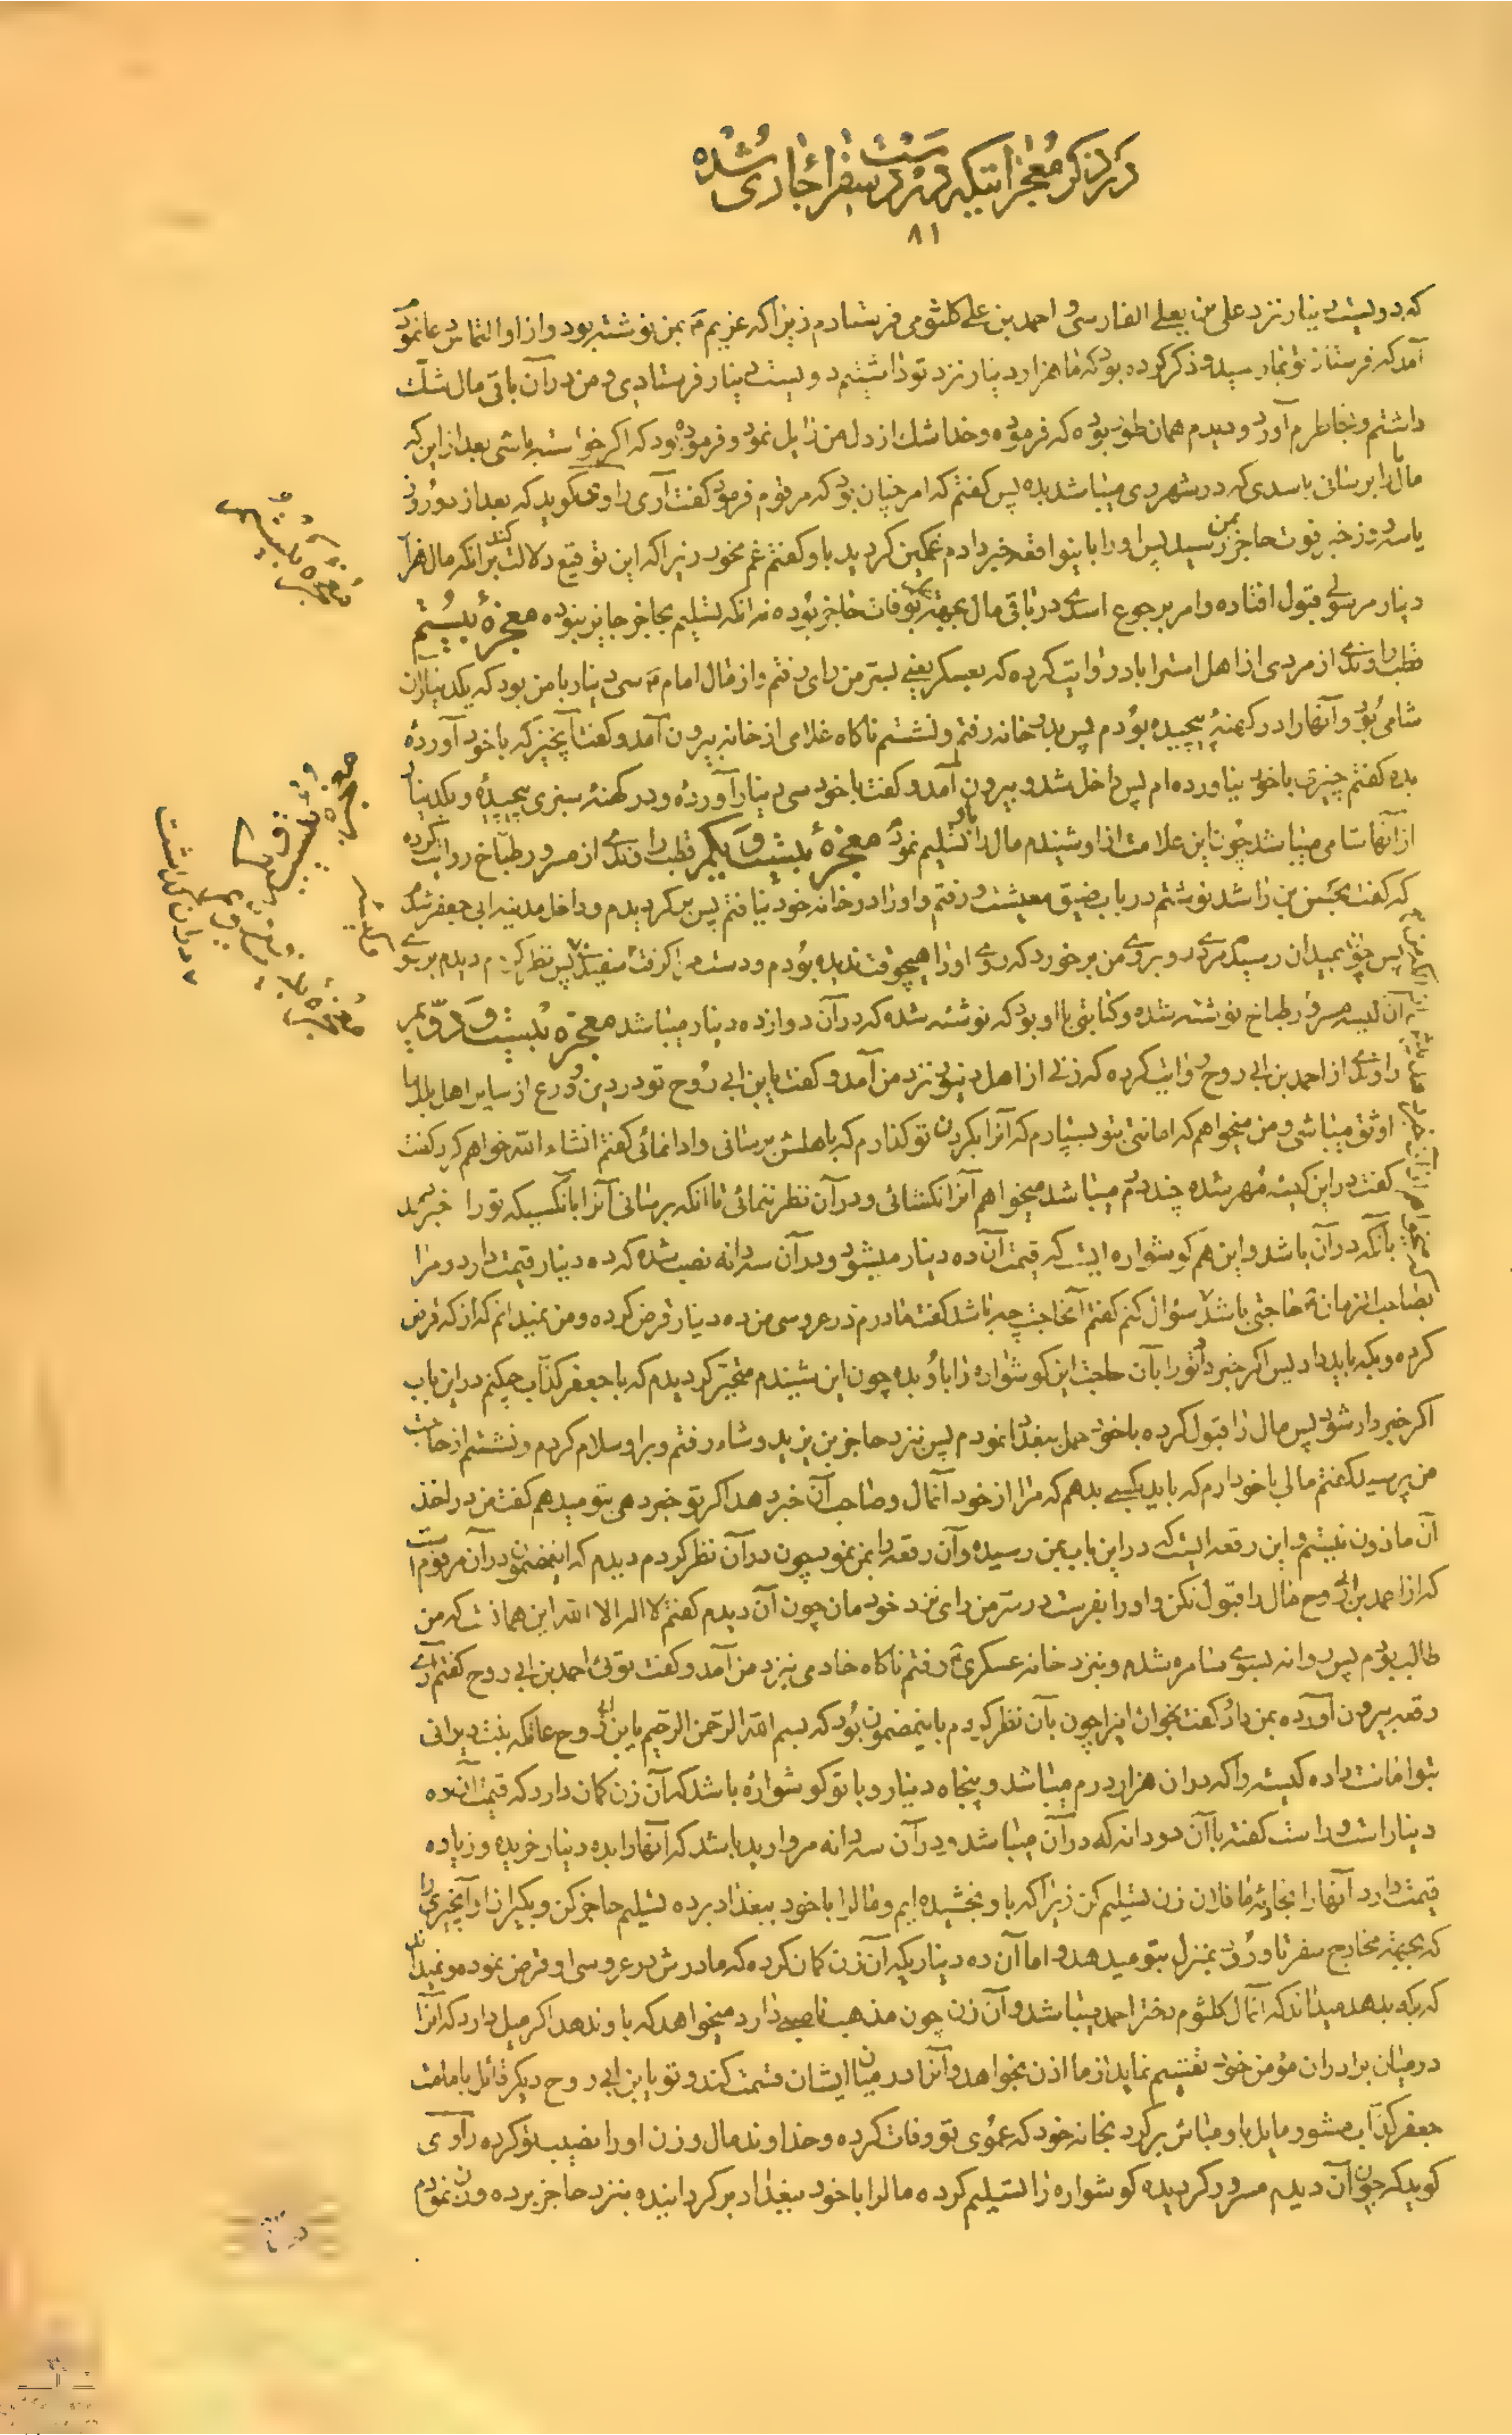 در ذکر معجزاتیکه در دست سفراء جاری شده
۸۱
که دویست دینار نزد علی من یعلی الفارسی و احمد بن علی کلثومی فرستادم زیرا که عزیم بمن نوشته بود و از او التماس دعا نمود
آمد که فرستاده تو بما رسید و ذکر کرده بود که ما هزار دینار نزد تو داشتیم دویست دینار فرستادی و من در آن باقی مال شک
داشتم و بخاطرم آورد و دیدم همان طور بوده که فرموده و خدا شک از دل من زایل نمود و فرموده بود که اگر خواسته باشی بعد از این که
مال را برسانی باسدی که در شهر ری میباشد بده پس گفتم که امر چنان بود که مرقوم فرمود گفت آری راوی گوید که بعد از دو روز
یا سه روز خبر فوت حاجز بمن رسید پس او را باینواقعه خبر دادم غمگین گردید باو گفتم غم مخور زیرا که این توقیع دلالت کند برآنکه مال هزار
دینار مرسولی قبول افتاده و امر برجوع اسدی در باقی مال بجهة وفات حاجز بوده نه آنکه تسلیم بحاجز جایز نبوده معجزهٔ بیستم
قطب راوندی از مردی از اهل استراباد روایت کرده که بعسکر یعنی بسترمن رای رفتم و از مال امام سی دینار با من بود که یکدینار آن
شامی بود و آنها را در کهنهٔ پیچیده بودم پس بدر خانه رفتم و نشستم ناگاه غلامی از خانه بیرون آمد و گفت آنچیز که با خود آورده
بده گفتم چیزی با خود نیاورده ام پس داخل شد و بیرون آمد و گفت با خود سی دینار آورده و در کهنهٔ سبزی پیچیدهٔ و یکدینار
از آنها شامی میباشد چون این علامت از او شنیدم مال را باو تسلیم نمود معجزهٔ بیست و یکم قطب راوندی از مسرور طباخ روایت کرده
که گفت بحسن بن راشد نوشتم در باب ضیق معیشت و رفتم و او را در خانه خود نیافتم پس برگردیدم و داخل مدینه ابی جعفر شدم
پس چون بمیدان رسیدم مردی رو بروی من برخورد که روی او را هیچوقت ندیده بودم و دست مرا گرفت پس نظر کردم دیدم بر روی
آن کیسه مسرور طباخ نوشته شده و کتابتی با او بود که نوشته شده که در آن دوازده دینار میباشد معجزه بیست و دویم
راوندی از احمد بن ابی روح روایت کرده که زنی از اهل دینور نزد من آمد و گفت یابن ابی روح تو در دین و ورع از سایر اهل بلد ما
اوثق میباشی و من میخواهم که امانتی بتو بسپارم که آنرا بگردن تو گذارم که باهلش برسانی و ادا نمائی گفتم انشاء الله خواهم کرد گفت
گفت در این کیسه مهر شده چند درم میباشد میخواهم آنرا نگشائی و در آن نظر ننمائی تا آنکه برسانی آنرا بآنکسیکه تو را خبر دهد
بآنکه در آن باشد و این هم گوشواره ایست که قیمت آن ده دینار میشود و در آن سه دانه نصب شده که ده دینار قیمت دارد و مرا
بصاحب الزمان حاجتی باشد سؤال کنم گفتم آنحاجت چه باشد گفت مادرم در عروسی من ده دینار قرض کرده و من نمیدانم که از که قرض
کرده و بکه باید داد پس اگر خبر داد تو را بآن حاجت این گوشواره را باو بده چون این شنیدم متحیر گردیدم که با جعفر کذاب چکنم در این باب
اگر خبردار شود پس مال را قبول کرده با خود حمل ببغداد نمودم پس نزد حاجز بن یزید وشاء رفتم و بر او سلام کردم و نشستم از حاجت
من پرسید گفتم مالی با خود دارم که باید بکسی بدهم که مرا از خود آنمال و صاحب آن خبر دهد اگر تو خبر دهی بتو میدهم گفت من در اخذ
آن ماذون نیستم و این رقعه ایست که در این باب بمن رسیده و آن رقعه را بمن نمود چون در آن نظر کردم دیدم که اینمضمون در آن مرقوم است
که از احمد بن ابی روح مال را قبول نکن و او را بفرست در سترمن رای نزد خودمان چون آن دیدم گفتم لا اله الا الله این همانست که من
طالب بودم پس روانه بسوی سامره شدم و بنزد خانه عسکری رفتم ناگاه خادمی نزد من آمد و گفت توئی احمد بن ابی روح گفتم آری
رقعه بیرون آورده بمن داد گفت بخوان اینرا چون بآن نظر کردم باینمضمون بود که بسم الله الرحمن الرحیم یابن ابی روح عاتکه بنت دیرانی
بتو امانت داده کیسهٔ را که در آن هزار درم میباشد و پنجاه دینار و با تو گوشواره باشد که آن زن گمان دارد که قیمت آن ده
دینار است و راست گفته با آن دو دانه که در آن میباشد و در آن سه دانه مروارید باشد که آنها را بده دینار خریده و زیاده
قیمت دارد آنها را بجاریهٔ ما فلان زن تسلیم کن زیرا که باو بخشیده ایم و مال را با خود ببغداد برده تسلیم حاجز کن و بگیر از او آنچیزی را
که بجهة مخارج سفر تا ورود بمنزل بتو میدهد و اما آن ده دیناریکه آن زن گمان کرده که مادرش در عروسی او قرض نموده و نمیداند
که بکه بدهد میداند که آنمال کلثوم دختر احمد میباشد و آن زن چون مذهب ناصبی دارد میخواهد که باو ندهد اگر میل دارد که آنرا
در میان برادران مؤمن خود تقسیم نماید از ما اذن بخواهد و آنرا در میان ایشان قسمت کند و تو یابن ابی روح دیگر قائل بامامت
جعفر کذاب مشو و مایل باو مباش برگرد بخانه خود که عموی تو وفات کرده و خداوند مال و زن او را نصیب تو کرده راوی
گوید که چون آن دیدم مسرور گردیده گوشواره را تسلیم کرده مال را با خود ببغداد برگردانیده بنزد حاجز برده وزن نمودم